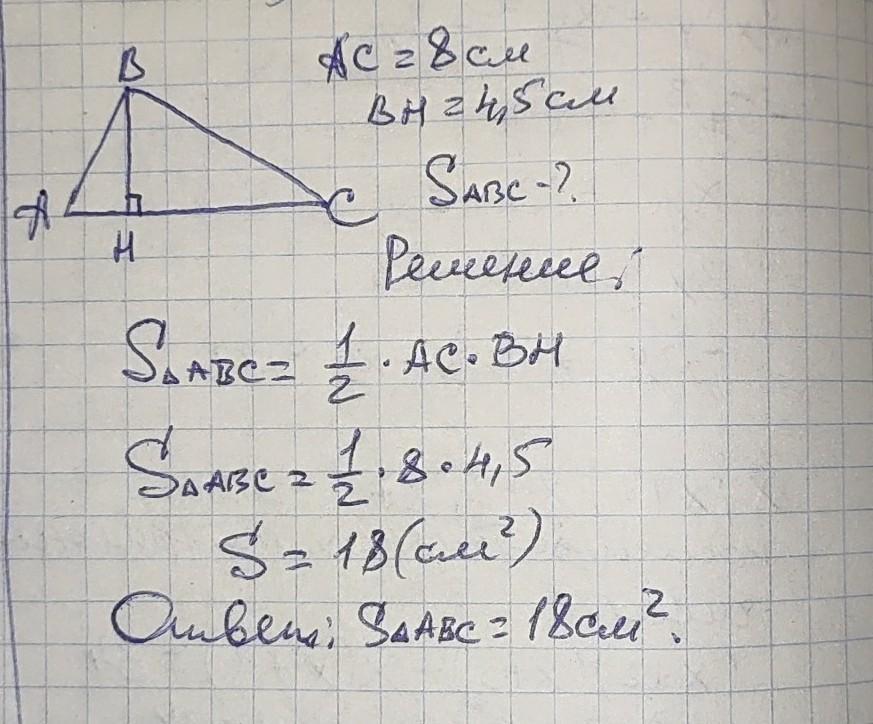 AC = 8 см
BH = 4,5 см
B
A
H
C
S ABC - ?
Решение:
S△ABC = 1/2 · AC · BH
S△ABC = 1/2 · 8 · 4,5
S = 18 (см²)
Ответ: S△ABC = 18 см².